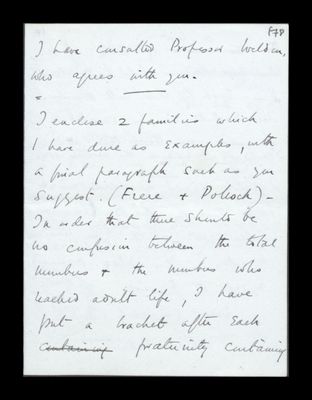 F78
I have consulted Professor Weldon,
who agrees with you.
I enclose 2 families which
I have done as examples, with
a final paragraph such as you
suggest. (Frere & Pollock) -
In order that there should be
no confusion between the total
numbers & the numbers who
reached adult life, I have
put a bracket after each
containing fraternity containing